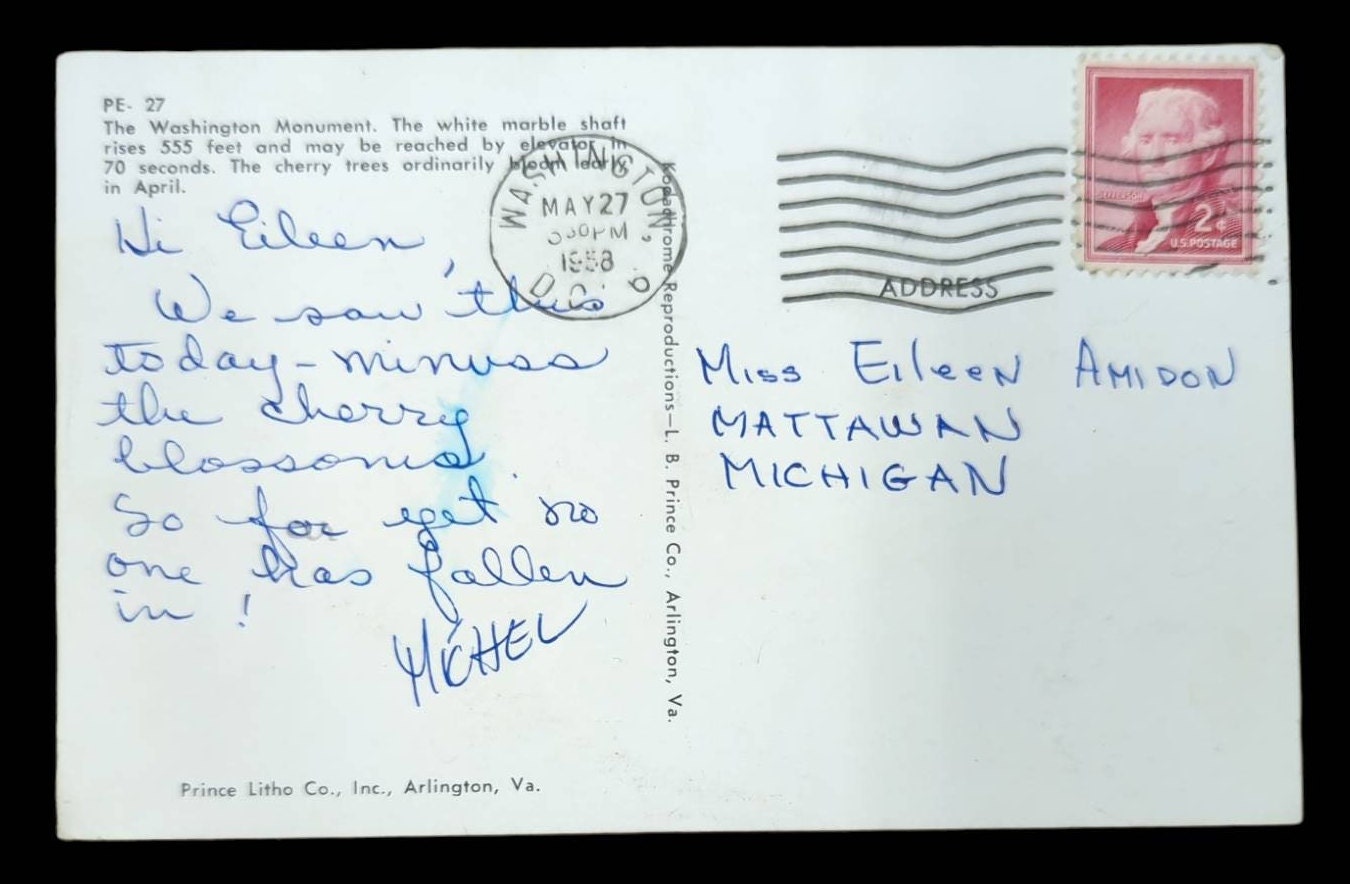 PE- 27
The Washington Monument. The white marble shaft
rises 555 feet and may be reached by elevator in
70 seconds. The cherry trees ordinarily bloom early
in April.
Hi Eileen,
We saw this
today - minuss
the cherry
blossoms.
So far yet no
one has fallen
in!
MICHEL
Prince Litho Co., Inc., Arlington, Va.
WASHINGTON,
MAY 27
PM
1958
D.C.
Kodachrome Reproductions—L. B. Prince Co., Arlington, Va.
JEFFERSON
2¢
U.S. POSTAGE
ADDRESS
MISS EILEEN AMIDON
MATTAWAN
MICHIGAN